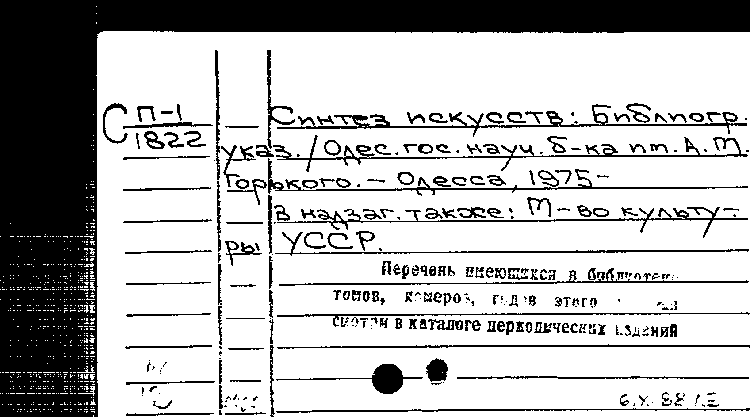 С П-1
1822
Синтез искусств: Библиогр.
указ. / Одес. гос. науч. б-ка им. А. М.
Горького. — Одесса, 1975-
В надзаг. также: М-во культу-
ры УССР.
Перечень имеющихся в библиотеке
томов, номеров, годов этого
смотри в каталоге периодических изданий
6.X.88